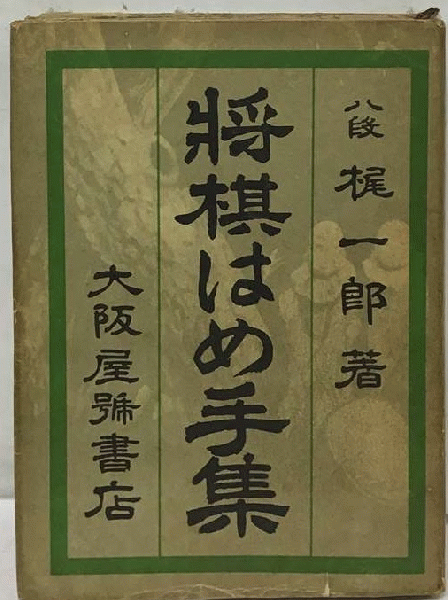 八段 梶一郎著
將棋はめ手集
大阪屋號書店